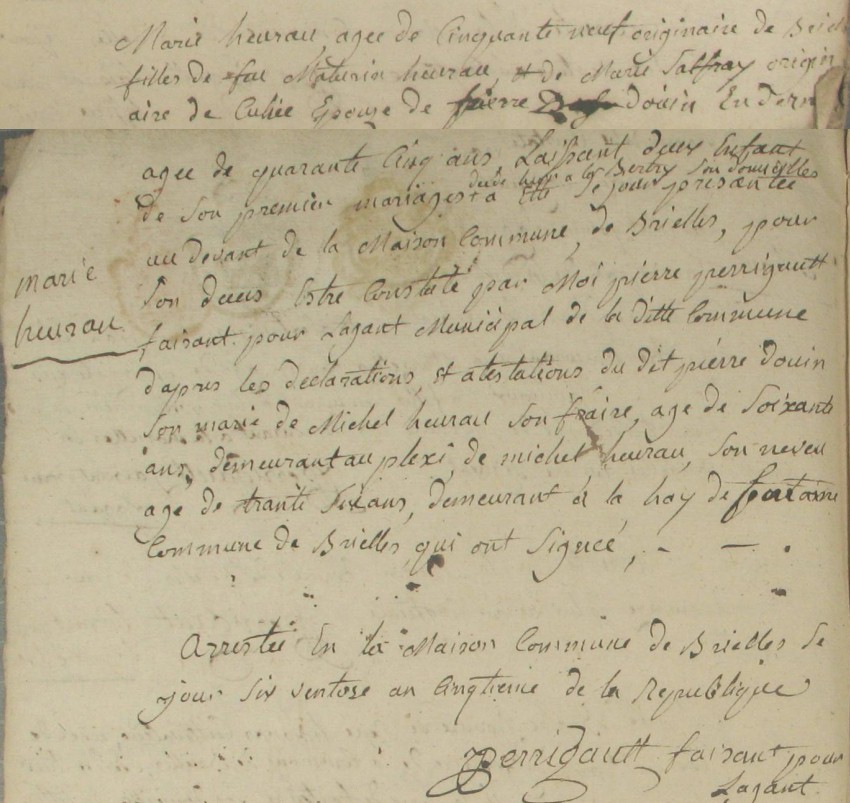 Marie heurau, agee de Cinquante neuf originaire de Briell
filles de feu Maturin heurau, et de Marie Saffray origin
aire de Culiée Epouse de pierre douin En dern
agee de quarante Cinq ans Laissent deux Enfant
decede hier a la Bertry son domicilles
de Son premier mariages a Etté Se jour presentée
au devant de la Maison Commune, de Brielles, pour
marie
Son deces Estre Constaté par Moi pierre perrigault
heurau
faisant pour Lagant Municipal de la ditte Commune
dapres les declarations, et atestations du dit pierre douin
Son marie de Michel heurau Son fraire, age de Soixante
ans, demeurant au plexi, de michel heurau, Son neveu
age de trante Six ans, demeurant á la hay de fontaine
Commune de Brielles, qui ont Signeé, - - .
Arrestée En la Maison Commune de Brielles Se
jour Six ventose an Cinqtieme de la Republique
Perrigault faisant pour
Lagant